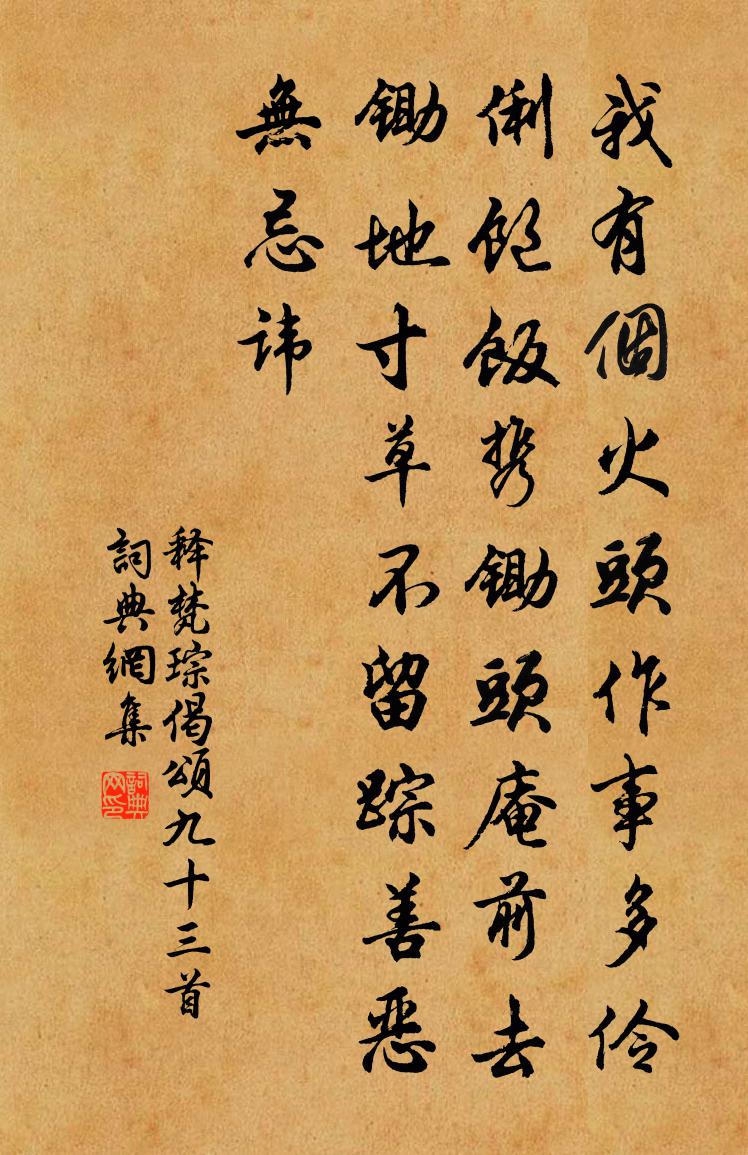 我有個火頭作事多伶
俐飽飯携鋤頭庵前去
鋤地寸草不留踪善惡
無忌諱
释梵琮偈頌九十三首
詞典網集
詞典网印